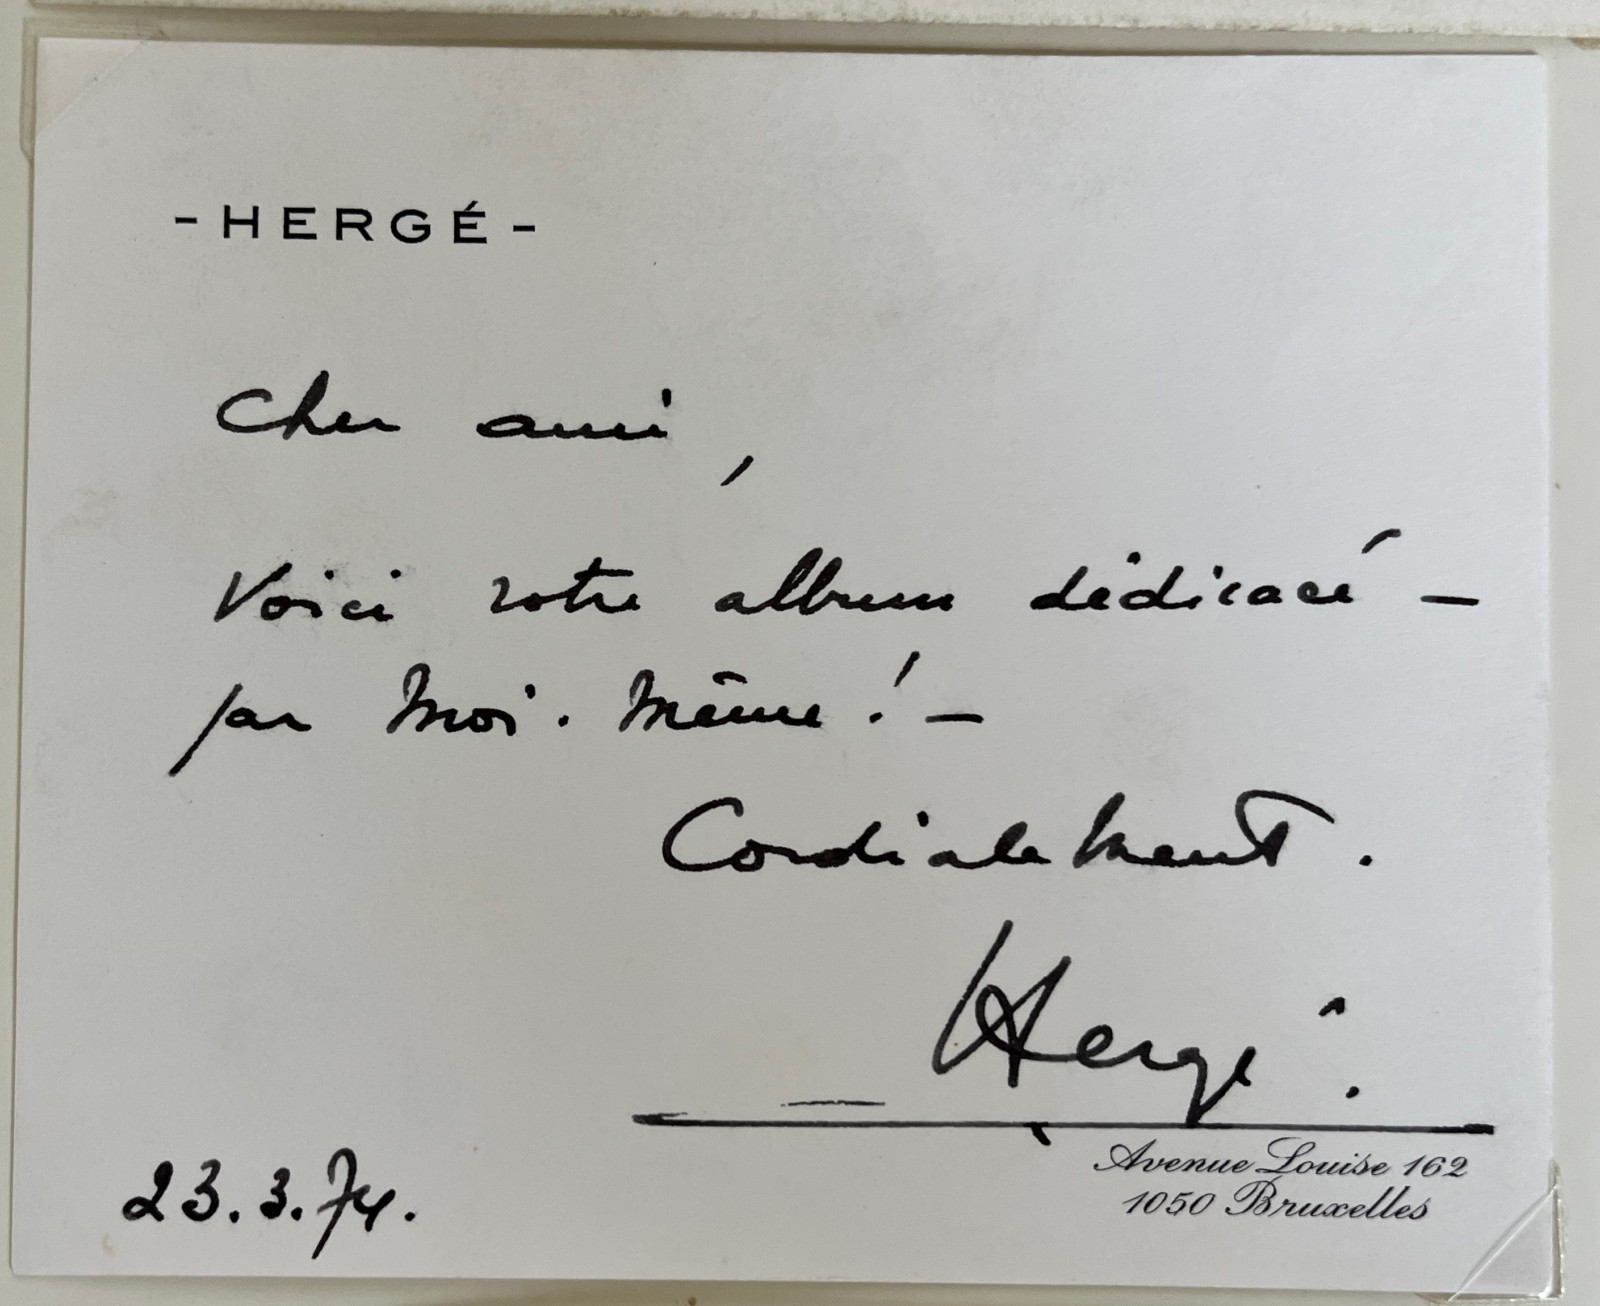 - HERGÉ -
Cher ami,
Voici votre album dédicacé -
par moi-même ! -
Cordialement.
Hergé.
23.3.74.
Avenue Louise 162
1050 Bruxelles